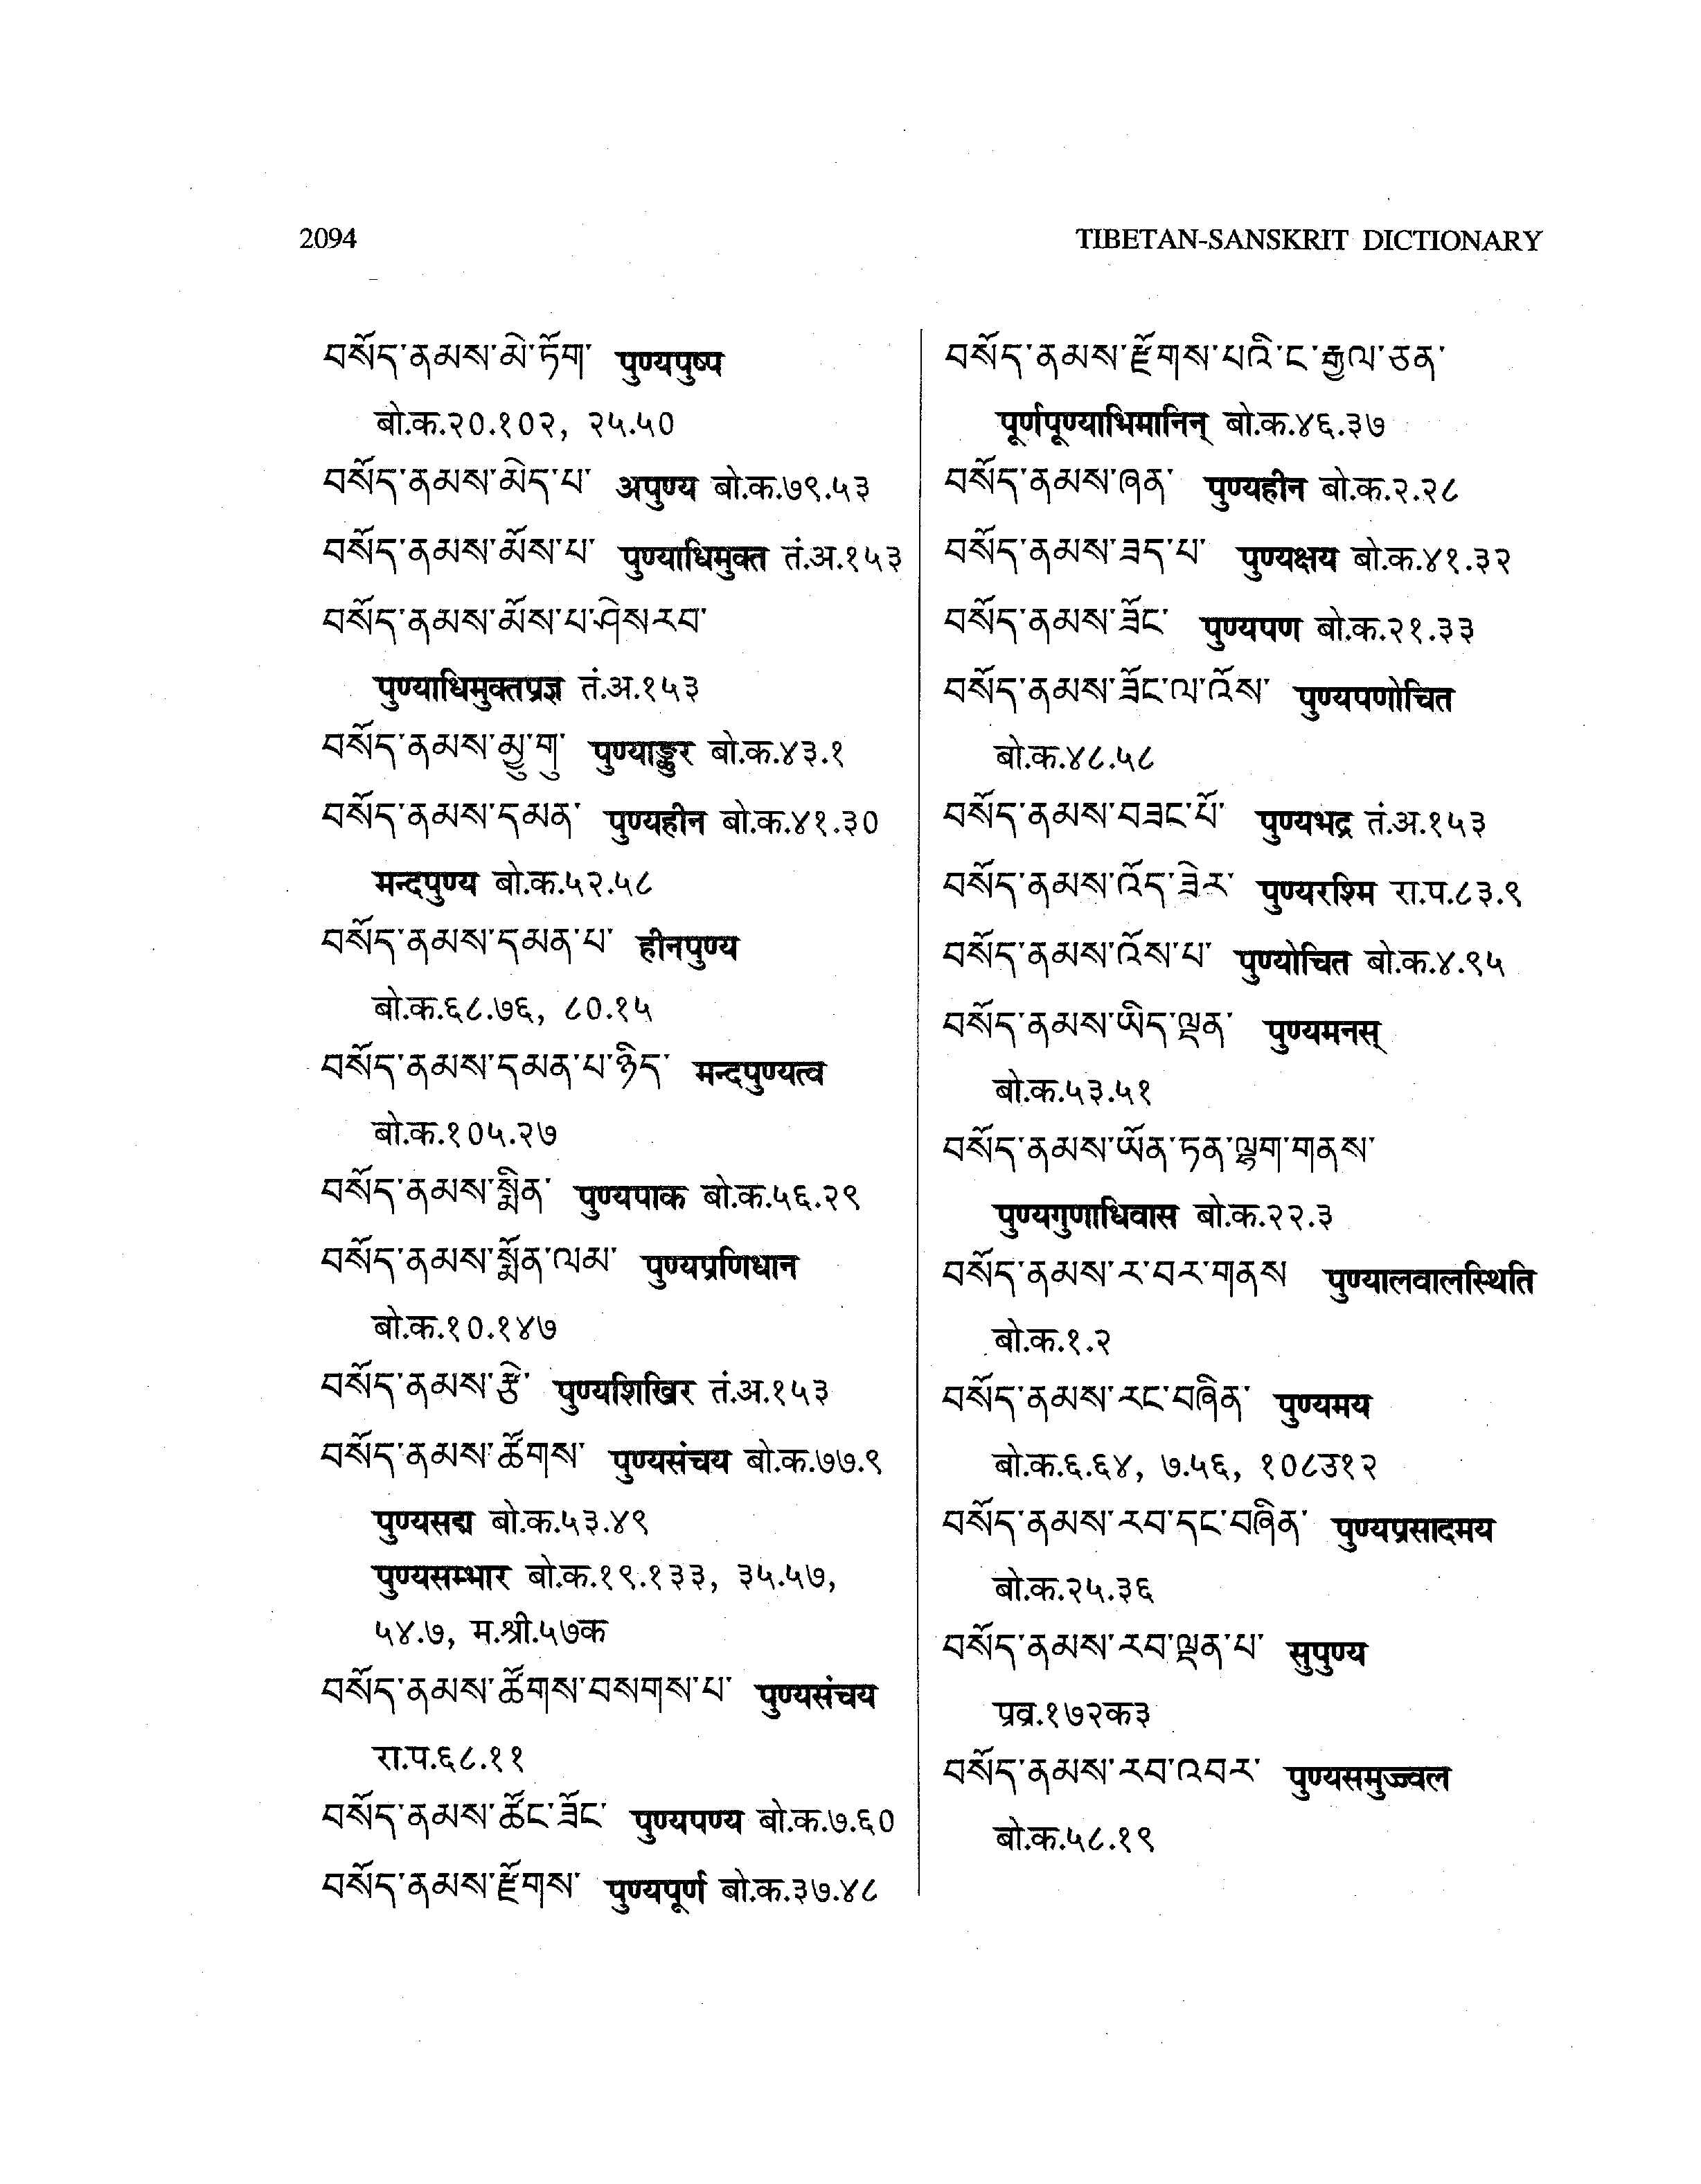 2094
TIBETAN-SANSKRIT DICTIONARY
བསོད་ནམས་མེ་ཏོག་ पुण्यपुष्प
बो.क.२०.१०२, २५.५०
བསོད་ནམས་མེད་པ་ अपुण्य बो.क.७९.५३
བསོད་ནམས་མོས་པ་ पुण्याधिमुक्त तं.अ.१५३
བསོད་ནམས་མོས་པ་ཤེས་རབ་
पुण्याधिमुक्तप्रज्ञ तं.अ.१५३
བསོད་ནམས་མྱུ་གུ་ पुण्याङ्कुर बो.क.४३.१
བསོད་ནམས་དམན་ पुण्यहीन बो.क.४१.३०
मन्दपुण्य बो.क.५२.५८
བསོད་ནམས་དམན་པ་ हीनपुण्य
बो.क.६८.७६, ८०.१५
བསོད་ནམས་དམན་པ་ཉིད་ मन्दपुण्यत्व
बो.क.१०५.२७
བསོད་ནམས་སྨིན་ पुण्यपाक बो.क.५६.२९
བསོད་ནམས་སྨོན་ལམ་ पुण्यप्रणिधान
बो.क.१०.१४७
བསོད་ནམས་རྩེ་ पुण्यशिखिर तं.अ.१५३
བསོད་ནམས་ཚོགས་ पुण्यसंचय बो.क.७७.९
पुण्यसद्म बो.क.५३.४९
पुण्यसम्भार बो.क.१९.१३३, ३५.५७,
५४.७, म.श्री.५७क
བསོད་ནམས་ཚོགས་བསགས་པ་ पुण्यसंचय
रा.प.६८.११
བསོད་ནམས་ཚོང་ཟོང་ पुण्यपण्य बो.क.७.६०
བསོད་ནམས་རྫོགས་ पुण्यपूर्ण बो.क.३७.४८
བསོད་ནམས་རྫོགས་པའི་ང་རྒྱལ་ཅན་
पूर्णपूण्याभिमानिन् बो.क.४६.३७
བསོད་ནམས་ཞན་ पुण्यहीन बो.क.२.२८
བསོད་ནམས་ཟད་པ་ पुण्यक्षय बो.क.४१.३२
བསོད་ནམས་ཟོང་ पुण्यपण बो.क.२१.३३
བསོད་ནམས་ཟོང་ལ་འོས་ पुण्यपणोचित
बो.क.४८.५८
བསོད་ནམས་བཟང་པོ་ पुण्यभद्र तं.अ.१५३
བསོད་ནམས་འོད་ཟེར་ पुण्यरश्मि रा.प.८३.९
བསོད་ནམས་འོས་པ་ पुण्योचित बो.क.४.९५
བསོད་ནམས་ཡིད་ལྡན་ पुण्यमनस्
बो.क.५३.५१
བསོད་ནམས་ཡོན་ཏན་ལྷག་གནས་
पुण्यगुणाधिवास बो.क.२२.३
བསོད་ནམས་ར་བར་གནས पुण्यालवालस्थिति
बो.क.१.२
བསོད་ནམས་རང་བཞིན་ पुण्यमय
बो.क.६.६४, ७.५६, १०८उ१२
བསོད་ནམས་རབ་དང་བཞིན་ पुण्यप्रसादमय
बो.क.२५.३६
བསོད་ནམས་རབ་ལྡན་པ་ सुपुण्य
प्रव्र.१७२क३
བསོད་ནམས་རབ་འབར་ पुण्यसमुज्ज्वल
बो.क.५८.१९